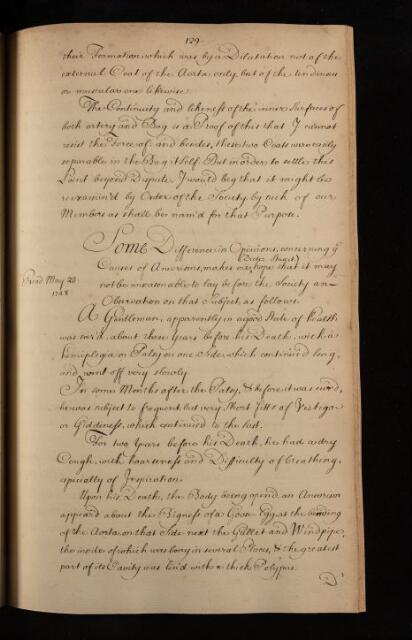 129.
their Formation, which was by a Dilatation not of the
external Coat of the Aorta only, but of the tendinous
or muscular one likewise.
The Continuity and likeness of the inner Surfaces of
both artery and Bag is a Proof of this that I cannot
resist the Force of: and besides, these two Coats were easily
separable in the Bag it Self. But in order to settle this
Point beyond Dispute, I would beg that it might be
reexamin'd by Order of the Society by such of our
Members as shall be nam'd for that Purpose.
Some Difference in Opinions, concerning ye
Causes of Aneurisms, makes me hope that it may
Read May 23
1728
not be unseasonable to lay before the Society an
Observation on that Subject, as follows.
A Gentleman, apparently in a good State of Health,
was seiz'd about three Years before his Death, with a
hemiplegia or Palsy on one Side, which continued long,
and went off very slowly.
In some Months after the Palsy, & before it was cured,
he was subject to frequent but very short Fitts of Vertigo
or Giddiness, which continued to the last.
For two Years before his Death, he had a dry
Cough, with hoarseness and Difficulty of breathing,
especialy of Inspiration.
Upon his Death, the Body being open'd, an Aneurism
appear'd about the Bigness of a Goose-Egg at the bending
of the Aorta, on that Side next the Gullet and Windpipe;
the inside of which was bony in several Places, & the greatest
part of its Cavity was lin'd with a thick Polypus.
Dr